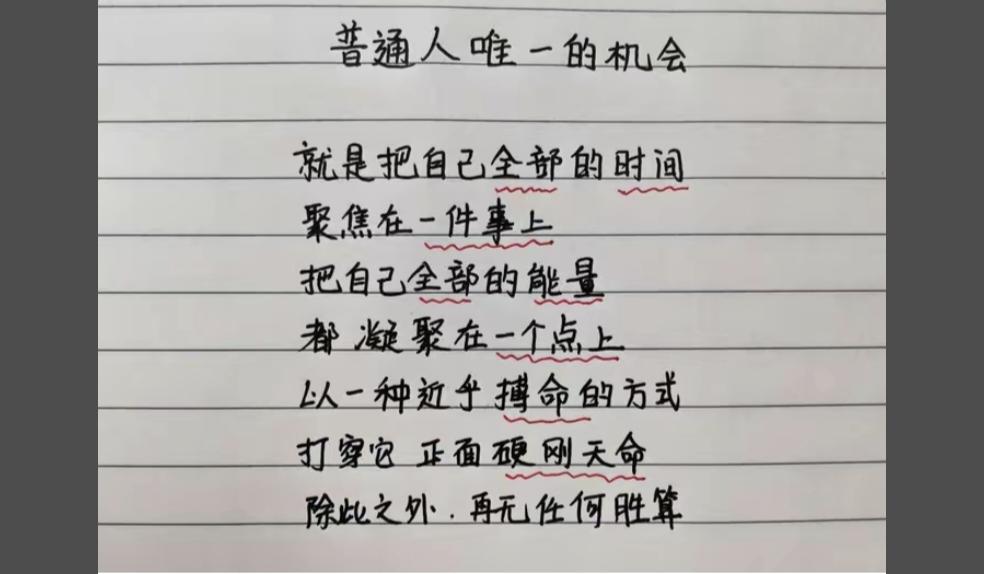 普通人唯一的机会
就是把自己全部的时间
聚焦在一件事上
把自己全部的能量
都凝聚在一个点上
以一种近乎搏命的方式
打穿它 正面硬刚天命
除此之外.再无任何胜算